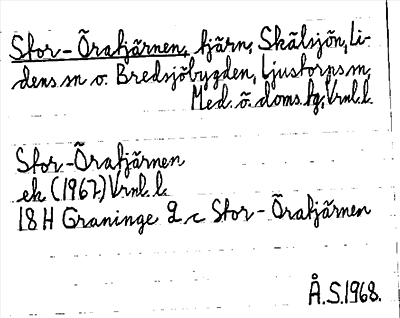 Stor-Öratjärnen, tjärn, Skälsjön, Li-
dens sn o. Bredsjöbygden, Ljustorps sn,
Med. ö. doms. tg, Vrnl. l.
Stor-Öratjärnen
ek (1967) Vrnl. l.
18H Graninge 2 c Stor-Öratjärnen
Å.S.1968.